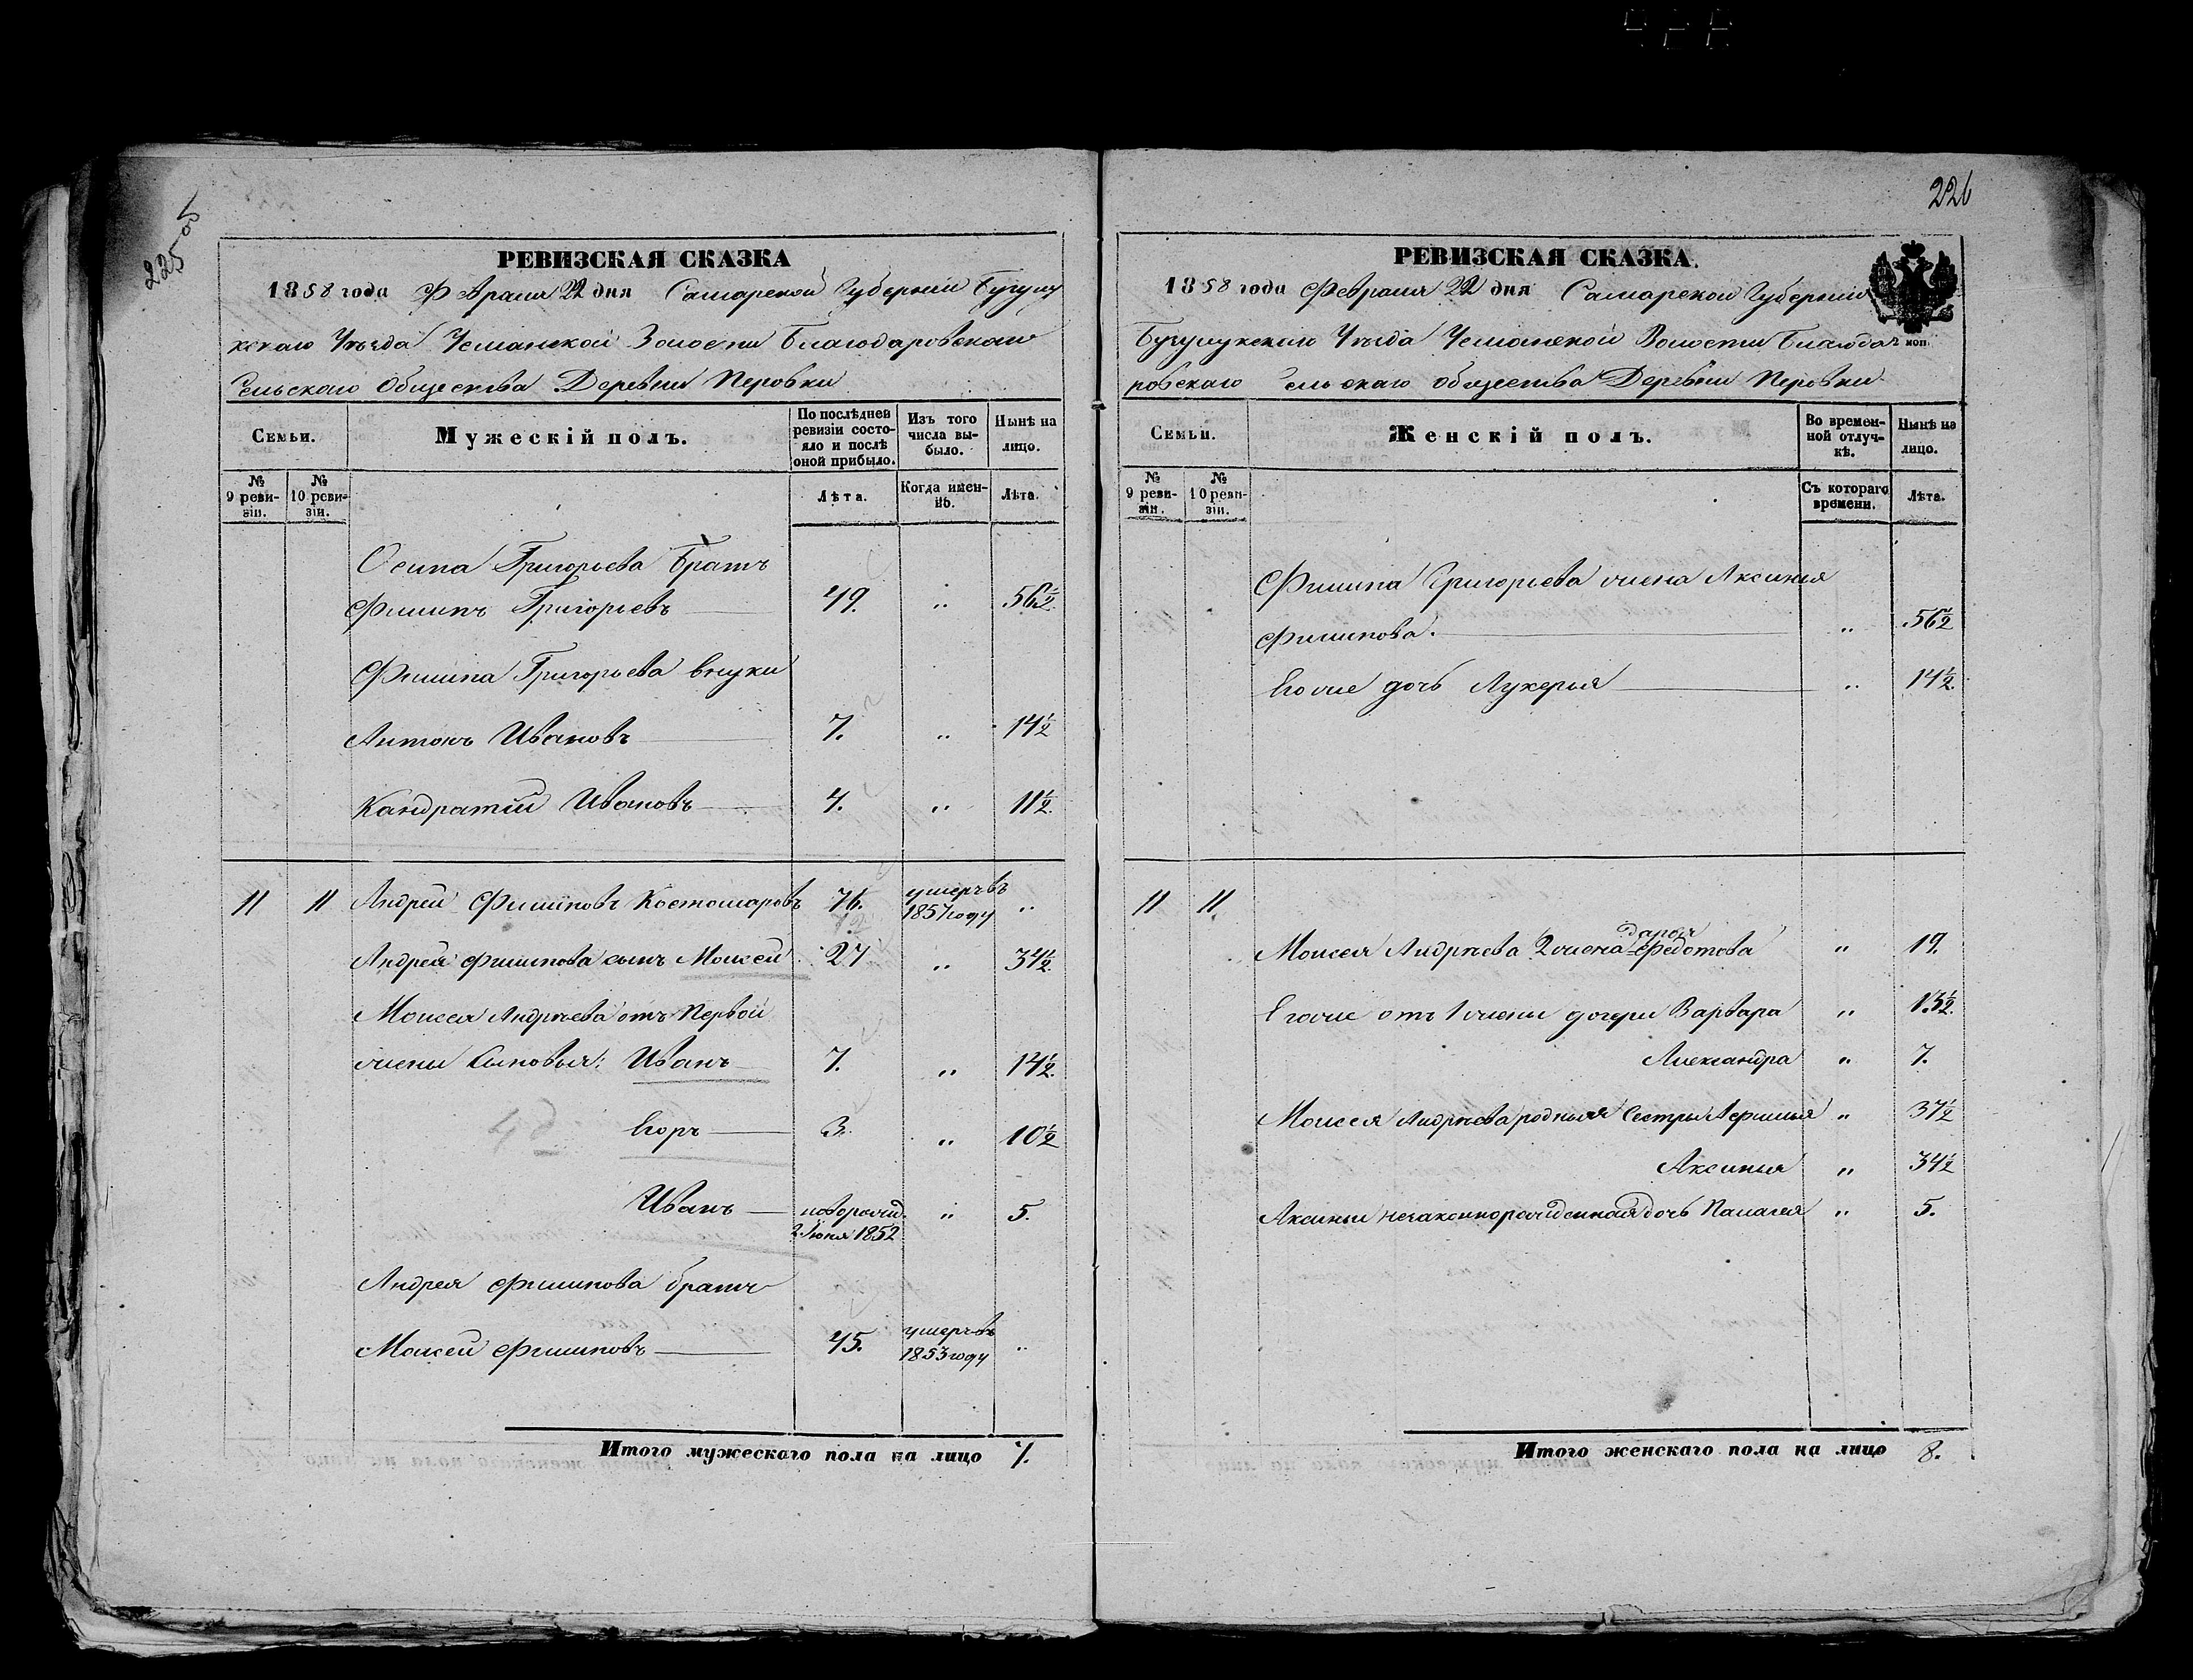 225 об
РЕВИЗСКАЯ СКАЗКА
1858 года Февраля 22 дня Самарской Губерніи Бугуру
кскаго Уѣзда Усманской Волости Благодаровскаго
Сельскаго Общества Деревни Перовки
Семьи.
Мужескій полъ.
По послѣдней ревизіи состояло и послѣ оной прибыло.
Изъ того числа выбыло.
Нынѣ на лицо.
№ 9 ревизіи.
№ 10 ревизіи.
Лѣта.
Когда именно.
Лѣта.
Осипа Григорьева Братъ
Филипъ Григорьевъ 49. " 56½.
Филипа Григорьева внуки
Антонъ Ивановъ 7. " 14½
Кандратій Ивановъ 4. " 11½.
11 11 Андрей Филиповъ Костомаровъ 76. умеръ въ 1857 году "
Андрея Филипова сынъ Моисей 27 " 34½.
Моисея Андрѣева отъ Первой
жены Сыновья: Иванъ 7. " 14½.
Егоръ 3. " 10½
Иванъ новорожд. 2 Июня 1852 " 5.
Андрея Филипова братъ
Моисей Филиповъ 45. умеръ въ 1853 году "
Итого мужескаго пола на лицо 7.
226
РЕВИЗСКАЯ СКАЗКА.
1858 года Февраля 22 дня Самарской Губерніи
Бугурукскаго Уѣзда Усманской Волости Благода
коп.
ровскаго Сельскаго общества Деревни Перовки
Семьи.
Женскій полъ.
Во временной отлучкѣ.
Нынѣ на лицо.
№ 9 ревизіи.
№ 10 ревизіи.
Съ котораго времени.
Лѣта.
Филипа Григорьева жена Аксинья
Филипова. " 56½
Его же дочь Лукерья " 14½.
11 11.
Моисея Андрѣева 2 жена Дарья Федотова " 19.
Его же отъ 1 жены дочери Варвара " 13½.
Александра " 7.
Моисея Андрѣева родныя Сестры Афимья " 37½
Аксинья " 34½
Аксиньи незаконнорожденная дочь Палагея " 5.
Итого женскаго пола на лицо 8.